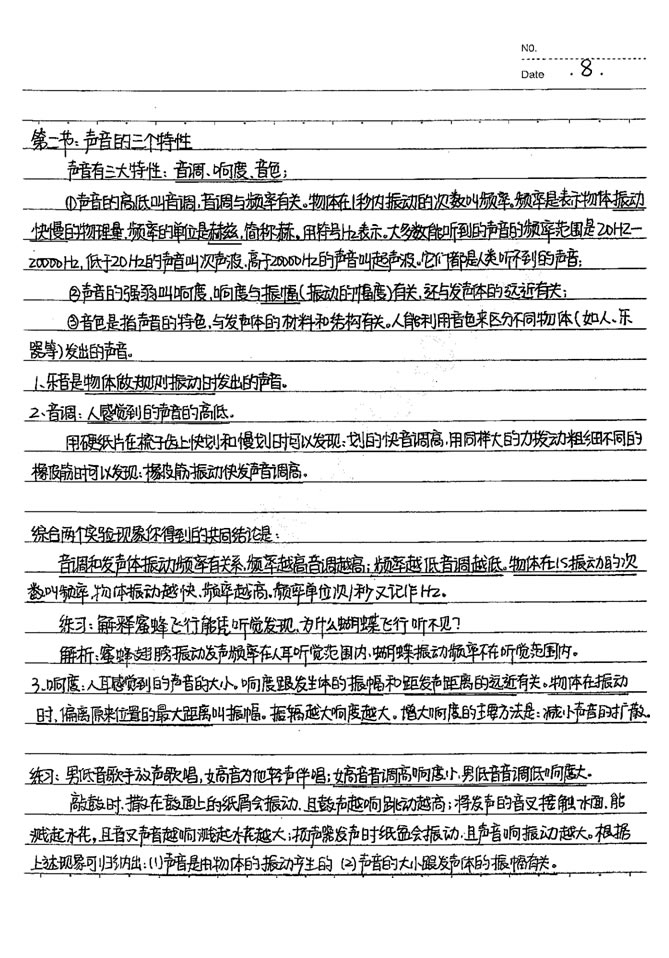 NO.
Date .8.
第二节：声音的三个特性
声音有三大特性：音调、响度、音色；
①声音的高低叫音调，音调与频率有关。物体在1秒内振动的次数叫频率。频率是表示物体振动
快慢的物理量，频率的单位是赫兹，简称赫。用符号Hz表示。大多数能听到的声音的频率范围是20HZ—
20000Hz，低于20Hz的声音叫次声波，高于20000Hz的声音叫超声波。它们都是人类听不到的声音；
②声音的强弱叫响度，响度与振幅（振动的幅度）有关，还与发声体的远近有关；
③音色是指声音的特色，与发声体的材料和结构有关。人能利用音色来区分不同物体（如人、乐
器等）发出的声音。
1、乐音是物体做规则振动时发出的声音。
2、音调：人感觉到的声音的高低。
用硬纸片在梳子齿上快划和慢划时可以发现：划的快音调高，用同样大的力拨动粗细不同的
橡皮筋时可以发现：橡皮筋振动快发声音调高。
综合两个实验现象你得到的共同结论是：
音调和发声体振动频率有关系，频率越高音调越高；频率越低音调越低。物体在1S振动的次
数叫频率，物体振动越快，频率越高。频率单位次/秒又记作Hz。
练习：解释蜜蜂飞行能凭听觉发现，为什么蝴蝶飞行听不见？
解析：蜜蜂翅膀振动发声频率在人耳听觉范围内，蝴蝶振动频率不在听觉范围内。
3、响度：人耳感觉到的声音的大小。响度跟发生体的振幅和距发声距离的远近有关。物体在振动
时，偏离原来位置的最大距离叫振幅。振幅越大响度越大。增大响度的主要方法是：减小声音的扩散。
练习：男低音歌手放声歌唱，女高音为他轻声伴唱；女高音音调高响度小，男低音音调低响度大。
敲鼓时，撒在鼓面上的纸屑会振动，且鼓声越响跳动越高；将发声的音叉接触水面，能
溅起水花，且音叉声音越响溅起水花越大；扬声器发声时纸盆会振动，且声音响振动越大。根据
上述现象可归纳出：(1)声音是由物体的振动产生的 (2)声音的大小跟发声体的振幅有关。